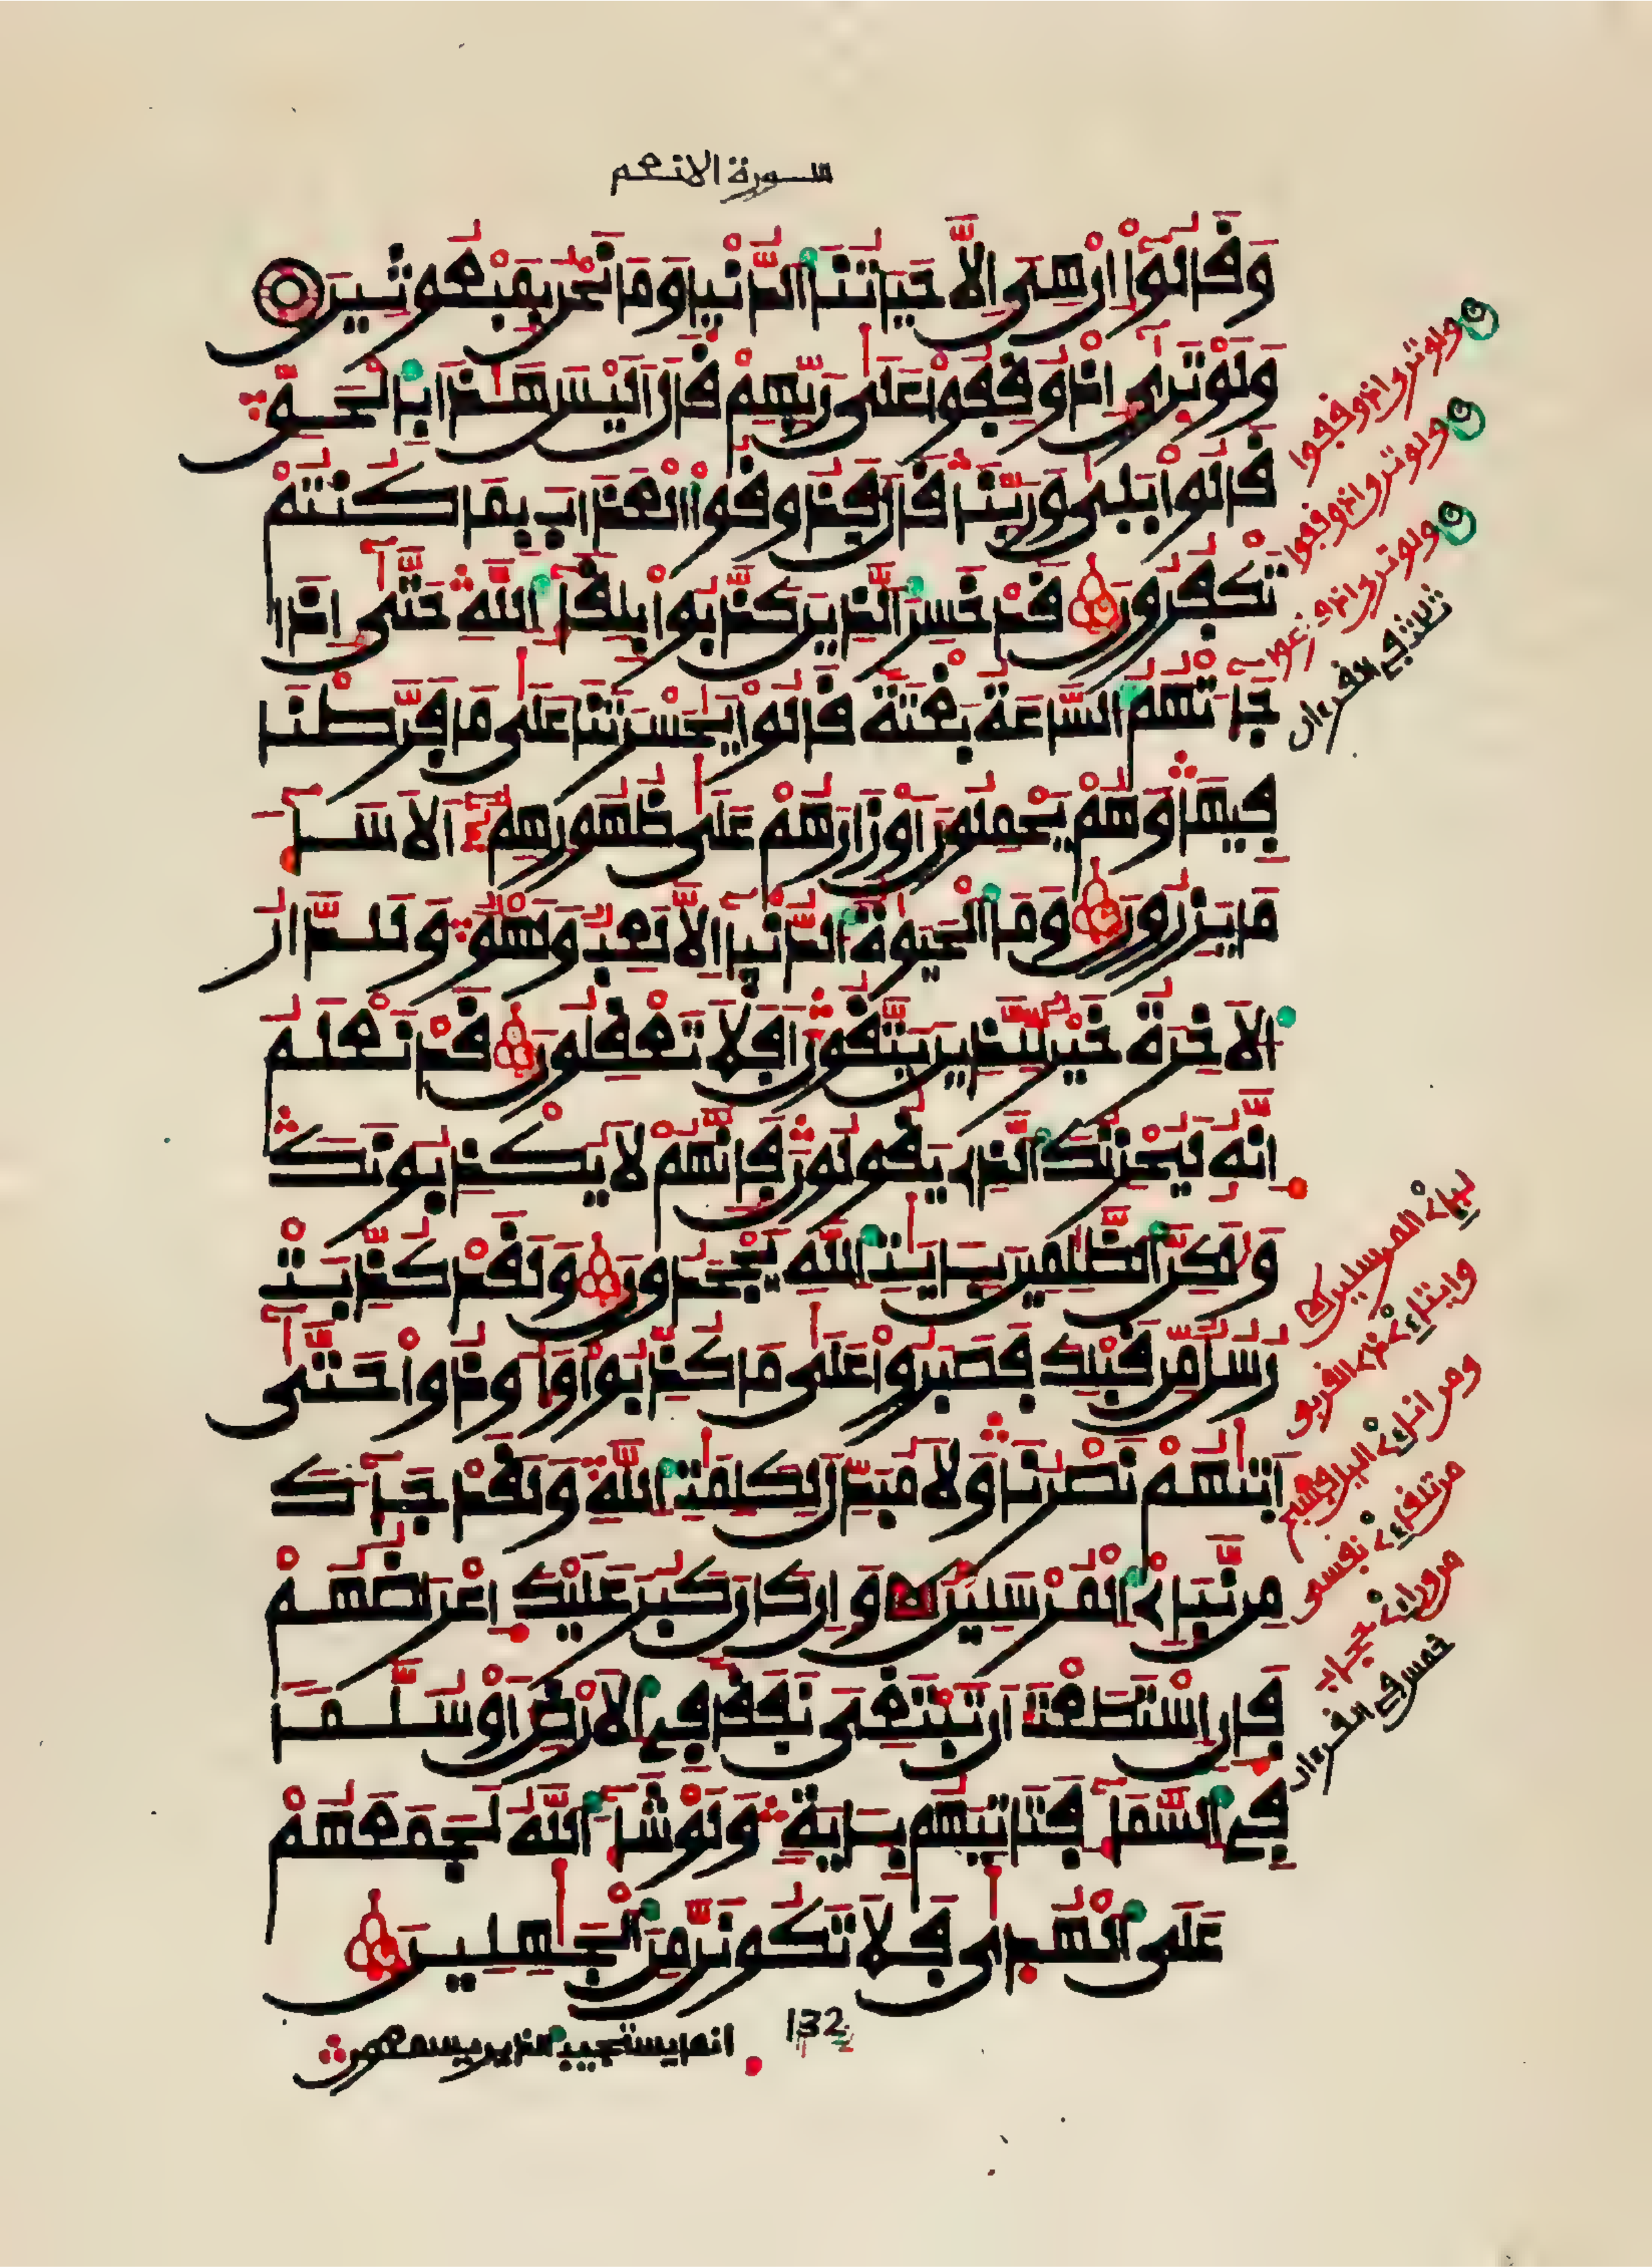 سورة الانعم
وَقَالُوٓاْ إِنْ هِىَ إِلَّا حَيَاتُنَا ٱلدُّنْيَا وَمَا نَحْنُ بِمَبْعُوثِينَ
وَلَوْ تَرَىٰٓ إِذْ وُقِفُواْ عَلَىٰ رَبِّهِمْ قَالَ أَلَيْسَ هَٰذَا بِٱلْحَقِّ
قَالُواْ بَلَىٰ وَرَبِّنَا قَالَ فَذُوقُواْ ٱلْعَذَابَ بِمَا كُنتُمْ
تَكْفُرُونَ قَدْ خَسِرَ ٱلَّذِينَ كَذَّبُواْ بِلِقَآءِ ٱللَّهِ حَتَّىٰٓ إِذَا
جَآءَتْهُمُ ٱلسَّاعَةُ بَغْتَةً قَالُواْ يَٰحَسْرَتَنَا عَلَىٰ مَا فَرَّطْنَا
فِيهَا وَهُمْ يَحْمِلُونَ أَوْزَارَهُمْ عَلَىٰ ظُهُورِهِمْ أَلَا سَآءَ
مَا يَزِرُونَ وَمَا ٱلْحَيَوٰةُ ٱلدُّنْيَآ إِلَّا لَعِبٌ وَلَهْوٌ وَلَلدَّارُ
ٱلْأَخِرَةُ خَيْرٌ لِّلَّذِينَ يَتَّقُونَ أَفَلَا تَعْقِلُونَ قَدْ نَعْلَمُ
إِنَّهُۥ لَيُحْزِنُكَ ٱلَّذِى يَقُولُونَ فَإِنَّهُمْ لَا يُكْذِبُونَكَ
وَلَٰكِنَّ ٱلظَّٰلِمِينَ بِـَٔايَٰتِ ٱللَّهِ يَجْحَدُونَ وَلَقَدْ كُذِّبَتْ
رُسُلٌ مِّن قَبْلِكَ فَصَبَرُواْ عَلَىٰ مَا كُذِّبُواْ وَأُوذُواْ حَتَّىٰٓ
أَتَىٰهُمْ نَصْرُنَا وَلَا مُبَدِّلَ لِكَلِمَٰتِ ٱللَّهِ وَلَقَدْ جَآءَكَ
مِن نَّبَإِىْ ٱلْمُرْسَلِينَ وَإِن كَانَ كَبُرَ عَلَيْكَ إِعْرَاضُهُمْ
فَإِنِ ٱسْتَطَعْتَ أَن تَبْتَغِىَ نَفَقًا فِى ٱلْأَرْضِ أَوْ سُلَّمًا
فِى ٱلسَّمَآءِ فَتَأْتِيَهُم بِـَٔايَةٍ وَلَوْ شَآءَ ٱللَّهُ لَجَمَعَهُمْ
عَلَى ٱلْهُدَىٰ فَلَا تَكُونَنَّ مِنَ ٱلْجَٰهِلِينَ
132
انما يستجيب الذين يسمعون
ولو ترى اذ وقفوا
ولو ترى اذ وقفوا
ولو ترى اذ فزعوا
ثلاثة في القرءان
نبإى المرسلين
وايتاءى ذى القربى
ومن اناءى اليل فسبح
من تلقاءى نفسى
من وراءى حجاب
خمس في القرءان